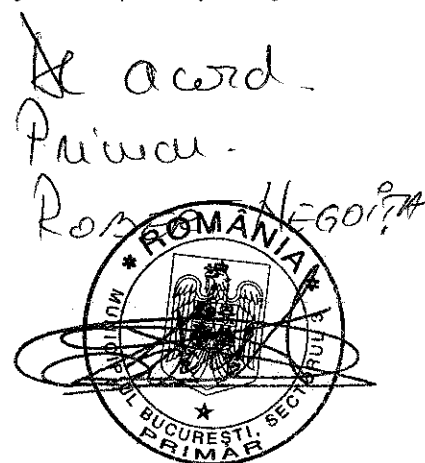 De acord.
Primar.
ROBERT NEGOIȚA
* ROMÂNIA *
MUNICIPIUL BUCUREȘTI, SECTORUL 3
PRIMAR